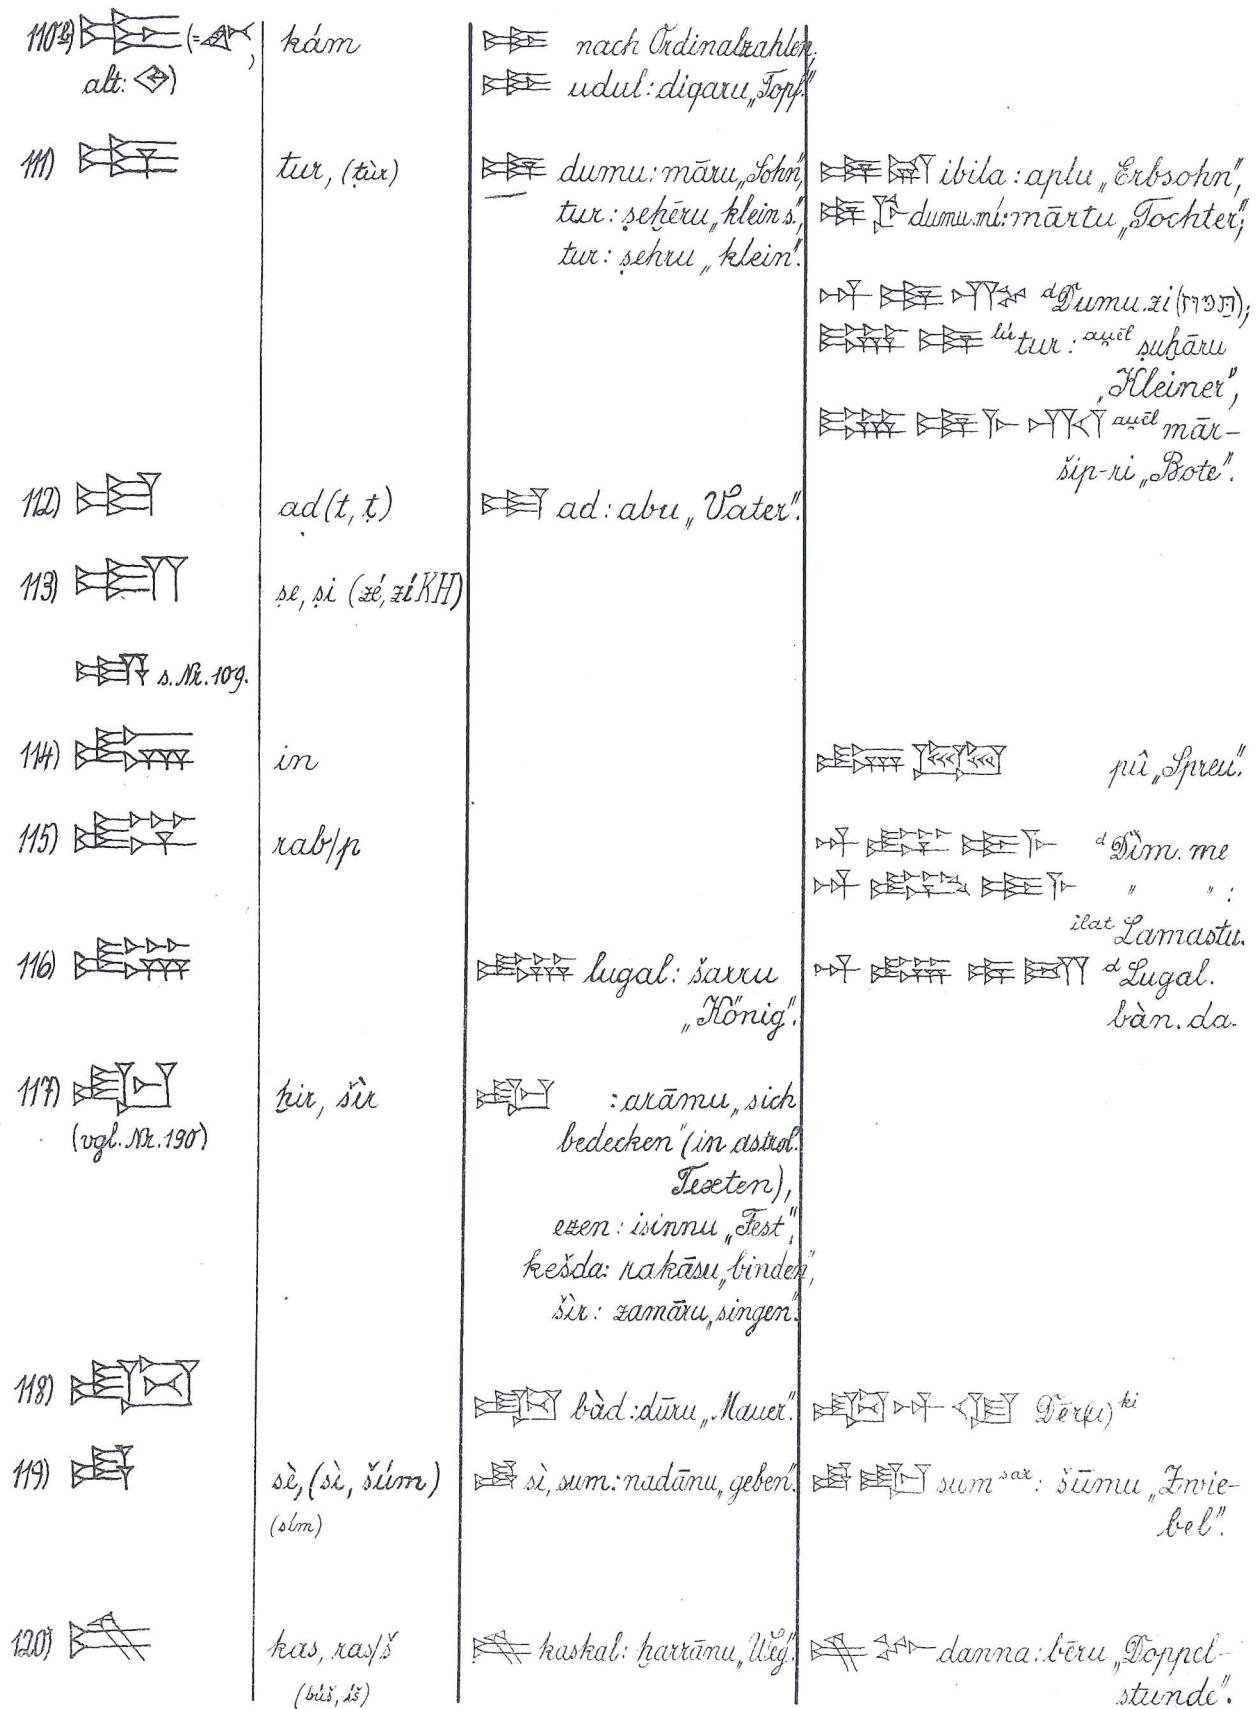 110a) 𒄰 (= kám nach Ordinalzahlen;
alt: ) udul: digaru „Topf“.
111) 𒌉 tur, (ṭùr) 𒌉 dumu: māru „Sohn“, 𒌉𒍑 ibila: aplu „Erbsohn“,
tur: ṣeḫēru „klein s.“, 𒌉𒊩 dumu.mí: mārtu „Tochter“;
tur: ṣeḫru „klein“.
𒀭𒌉𒍣 ᵈDumu.zi (תמוז);
𒇽𒌉 ˡútur: ᵃʷēˡ ṣuḫāru
„Kleiner“,
𒇽𒌉𒈨𒊑 ᵃʷēˡ mār-
šip-ri „Bote“.
112) 𒀜 ad (t, ṭ) 𒀜 ad: abu „Vater“.
113) 𒍢 ṣe, ṣi (zé, zí KH)
s. Nr. 109.
114) 𒅔 in 𒅔 pû „Spreu“.
115) 𒊐 rab/p 𒀭 ᵈDìm.me
𒀭 „ „ :
ilat Lamastu.
116) 𒈗 𒈗 lugal: šarru 𒀭𒈗𒌉𒁕 ᵈLugal.
„König“. bàn.da.
117) 𒂡 ḫir, šìr 𒂡 : arāmu „sich
(vgl. Nr. 190) bedecken“ (in astrol.
Texten),
ezen: isinnu „Fest“,
kešda: rakāsu „binden“,
šìr: zamāru „singen“.
118) 𒂦 𒂦 bàd: dūru „Mauer“. 𒂦𒀭𒆠 Dēr(u) ᵏⁱ
119) 𒋧 sè, (sì, šúm) 𒋧 sì, sum: nadānu „geben“. 𒋧𒊬 sum ˢᵃʳ: šūmu „Zwie-
(sím) bel“.
120) 𒆜 kas, ras/š 𒆜 kaskal: ḫarrānu „Weg“. 𒆜𒁍 danna: bēru „Doppel-
(búš, íš) stunde“.